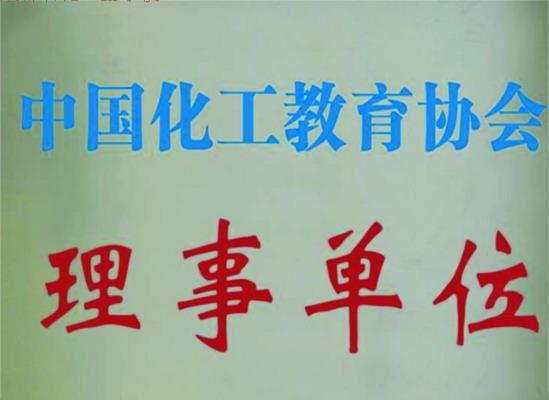 中国化工教育协会
理事单位